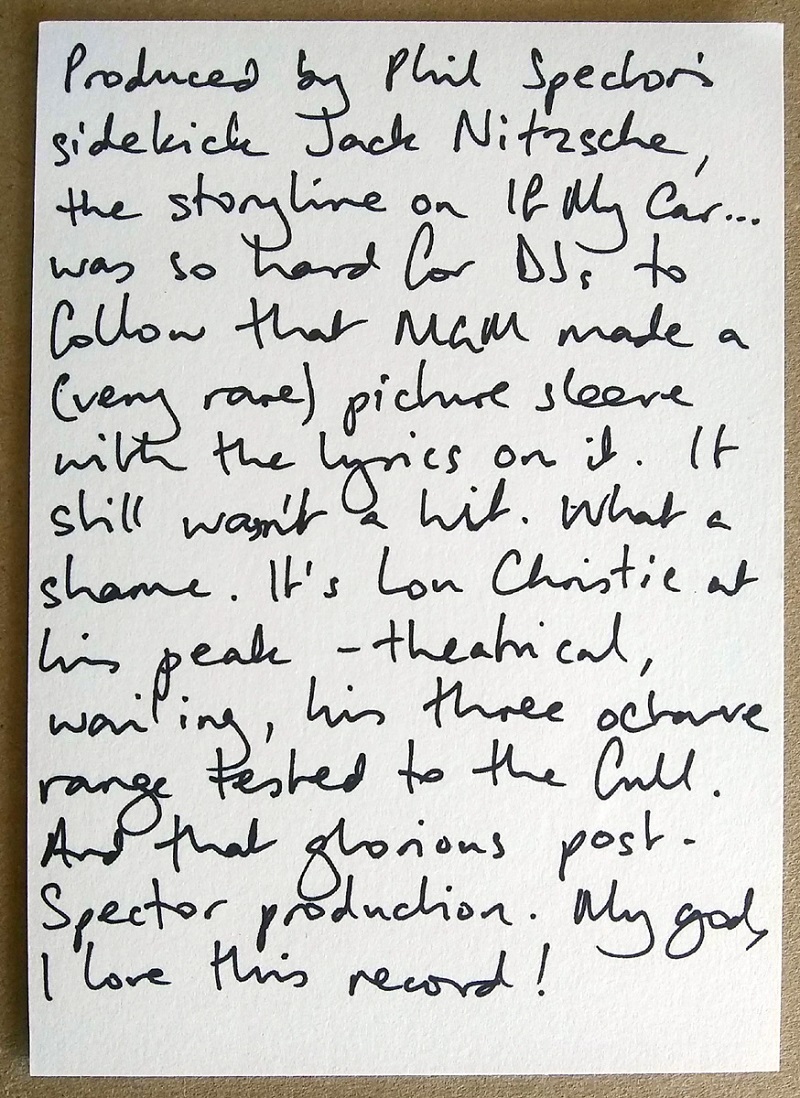 Produced by Phil Spector's
sidekick Jack Nitzsche,
the storyline on If My Car...
was so hard for DJs to
follow that MGM made a
(very rare) picture sleeve
with the lyrics on it. It
still wasn't a hit. What a
shame. It's Lou Christie at
his peak - theatrical,
wailing, his three octave
range tested to the full.
And that glorious post-
Spector production. My god,
I love this record!